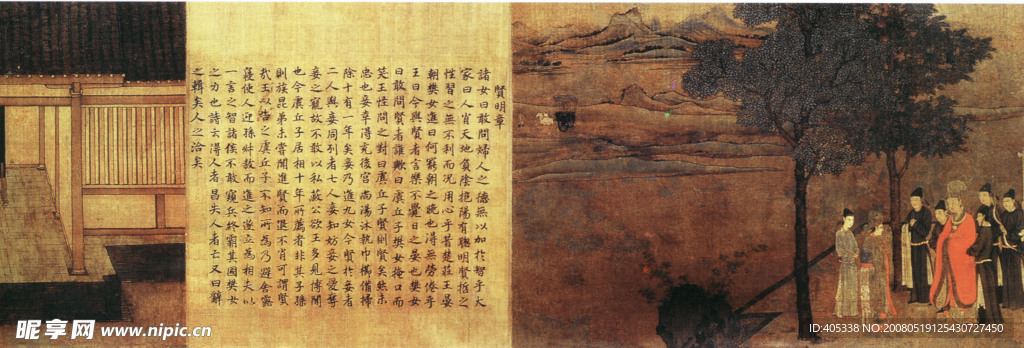 賢明章
諸女曰敢問婦人之德無以加於智乎大
家曰人肖天地負陰抱陽有聰明賢拉之
性習之無不利而況用心乎昔楚莊王晏
朝樊女進曰何罷朝之晚也得無勞倦乎
王曰今與賢者言樂不覺日之晏也樊女
曰敢問賢者誰歟曰虞丘子樊女掩口而
笑王怪問之對曰虞丘子賢則賢矣然未
忠也妾幸得充後宮尚湯沐執巾櫛備掃
除十有一年矣妾乃進九女今賢於妾者
二人與妾同列者七人妾知妨妾之愛奪
妾之寵故不敢以私蔽公欲王多見博聞
也今虞丘子居相十年所薦者非其子孫
則族昆弟未嘗聞進賢而退不肖可謂賢
哉王以告之虞丘子不知所為乃避舍露
寢使人迎孫叔敖而進之遂立為相夫以
一言之智諸侯不敢窺兵終霸其國樊女
之力也詩云得人者昌失人者亡又曰辭
之輯矣人之洽矣
昵享网 www.nipic.cn
ID:405338 NO:20080519125430727450